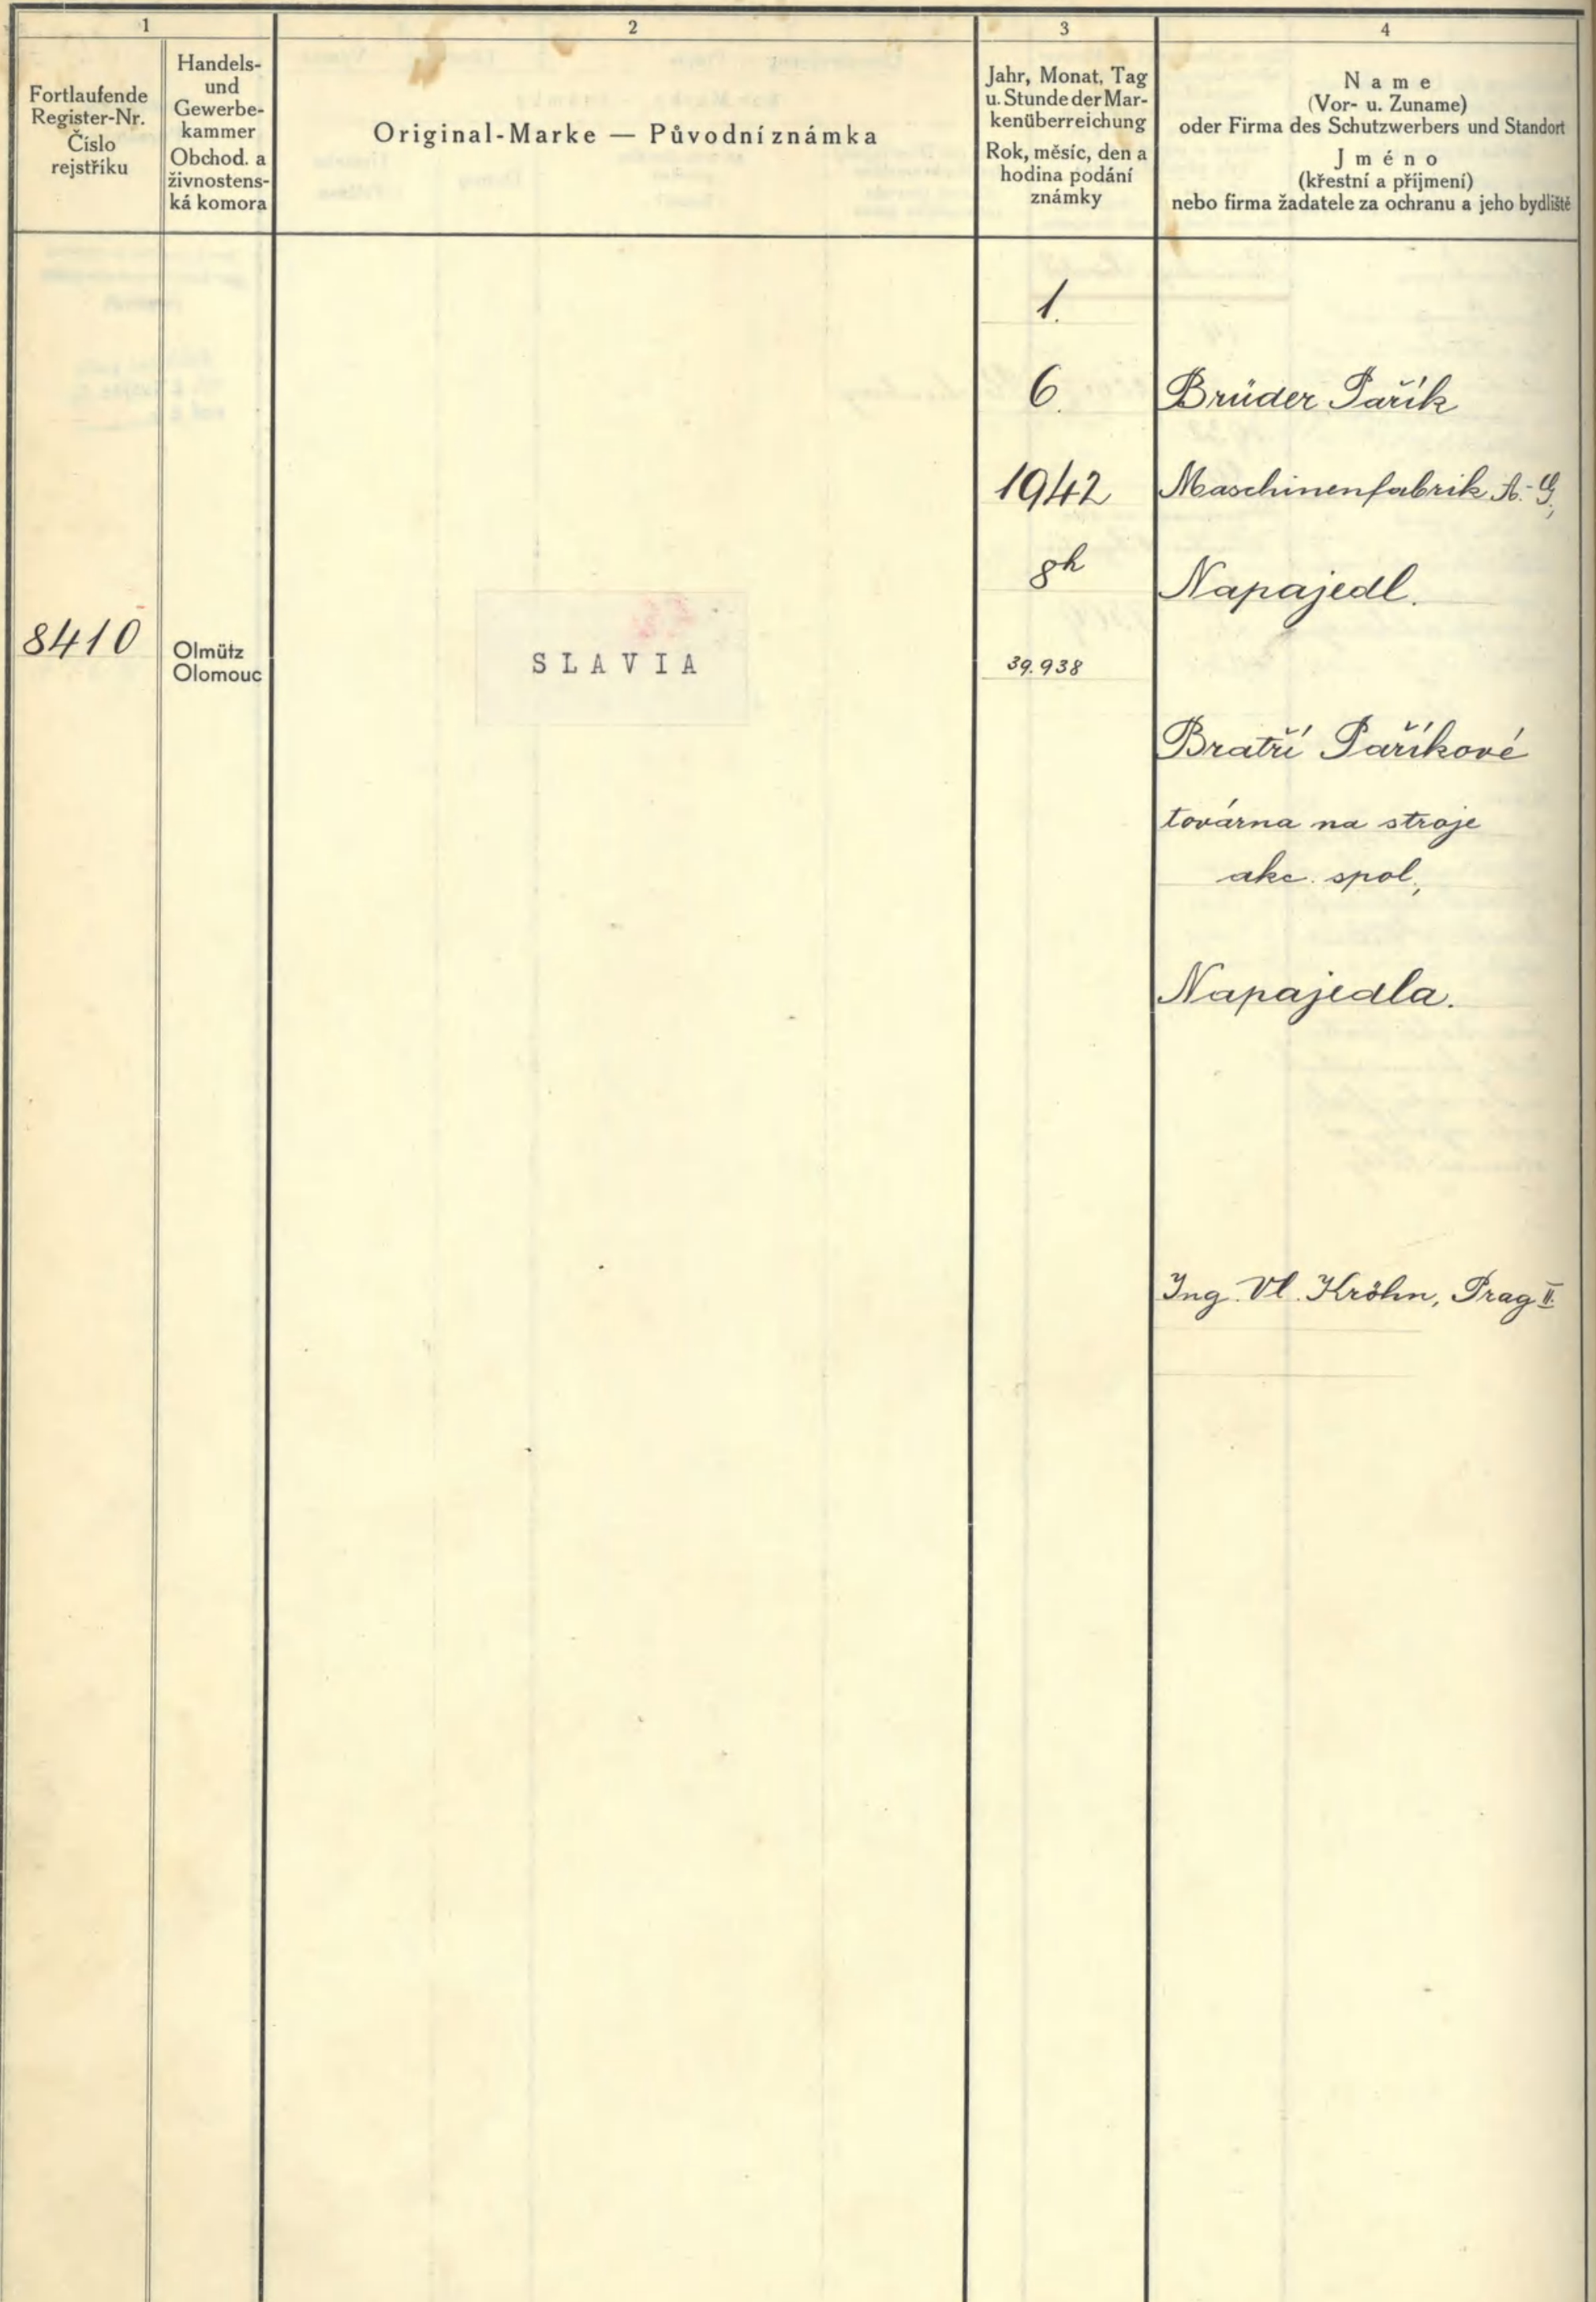 1
Fortlaufende
Register-Nr.
Číslo
rejstříku
Handels-
und
Gewerbe-
kammer
Obchod. a
živnostens-
ká komora
2
Original-Marke — Původní známka
3
Jahr, Monat, Tag
u. Stunde der Mar-
kenüberreichung
Rok, měsíc, den a
hodina podání
známky
4
Name
(Vor- u. Zuname)
oder Firma des Schutzwerbers und Standort
Jméno
(křestní a příjmení)
nebo firma žadatele za ochranu a jeho bydliště
8410
Olmütz
Olomouc
SLAVIA
1.
6.
1942
8h
39.938
Brüder Pařík
Maschinenfabrik A.-G.,
Napajedl.
Bratří Paříkové
továrna na stroje
akc. spol.,
Napajedla.
Ing. Vl. Kröhn, Prag II.